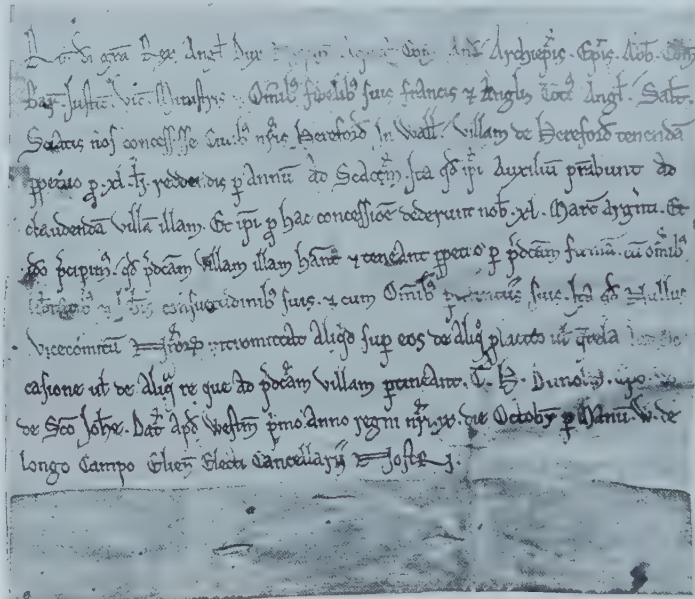 Ric̄ di gr̄a Rex Angl̄ Dux Com̄ And̄ Archiep̄is. Ep̄is. Abb̄. Com̄
Bar̄. Justic̄. Vic̄. Ministris 7 Omīb; fidelib; suis francis 7 Anglis Toti; Angl̄. Salt̄.
Sciatis nos concessisse Ciuib; nr̄is Hereford̄ In Wall̄. villam de Hereford̄ tenendā
ꝑpetuo ꝑ .xl. łi. reddendis ꝑ Annū Ad Scaccm̄. Ita qd̄ ip̄i Auxiliū p̄rabunt ad
claudendā villā illam. Et ip̄i ꝑ hac concessiōe dederunt nob̄ .xl. Marc̄ argn̄ti. Et
ido p̄cipim;. qd̄ p̄dc̄am villam illam hān̄t 7 teneant ꝑpetuo ꝑ p̄dc̄am firmā. cū om̄ib;
7 consuetudinib; suis. 7 cum Omīb; suis. Ita qd̄ Nullus
vicecomitū Nr̄oꝝ intromittat Aliq̄d suꝑ eos de Aliq̄ placito ul̄ q̄rela
casione ul̄ de Aliq̄ re que ad p̄dc̄am villam ꝑtineant. T̄. H. Dunolm̄. eꝑo
de Sc̄o Joh̄e. Dat̄ Apd̄ Westm̄ p̄mo Anno regni nr̄i .ix. die Octobr̄ ꝑ Manū W. de
longo Campo Elien̄ Electi Cancellarii Nostri.